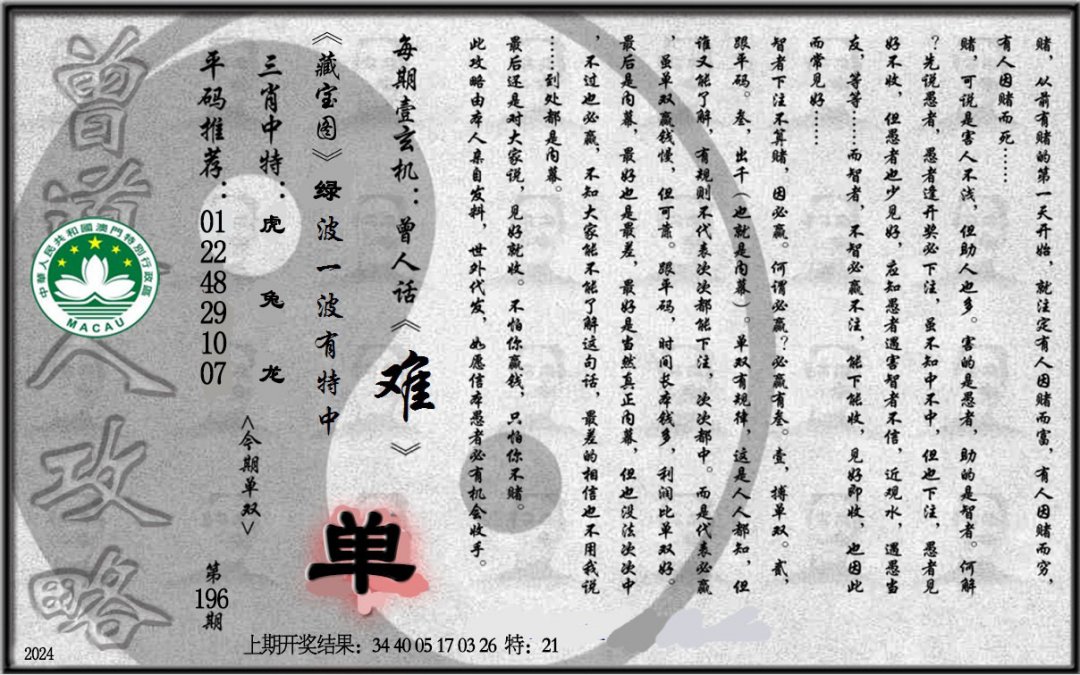 赌，从前有赌的第一天开始，就注定有人因赌而富，有人因赌而穷，
有人因赌而死……
赌，可说是害人不浅，但助人也多。害的是愚者，助的是智者。何解
？先说愚者，愚者逢开奖必下注，虽不知中不中，但也下注，愚者见
好不收，但愚者也少见好，应知愚者遇害智者不信，近观水，遇愚当
友，等等……而智者，不智必赢不注，能下能收，见好即收，也因此
而常见好……
智者下注不算赌，因必赢。何谓必赢？必赢有叁。壹，搏单双。贰，
跟平码。叁，出千（也就是内幕）。单双有规律，这是人人都知，但
谁又能了解，有规则不代表次次都能下注，次次都中。而是代表必赢
，虽单双赢钱慢，但可靠。跟平码，时间长本钱多，利润比单双好。
最后是内幕，最好也是最差，最好是当然真正内幕，但也没法次次中
，不过也必赢，不知大家能不能了解这句话，最差的相信也不用我说
……到处都是内幕。
最后还是对大家说，见好就收。不怕你赢钱，只怕你不赌。
此攻略由本人亲自发料，世外代发，如愿信本愚者必有机会收手。
每期壹玄机：曾人话《难》
《藏宝图》绿波一波有特中
三肖中特：虎 兔 龙
平码推荐：01 22 48 29 10 07
<今期单双>
单
第196期
曾道人攻略
中華人民共和國澳門特別行政區
MACAU
上期开奖结果：34 40 05 17 03 26 特：21
2024